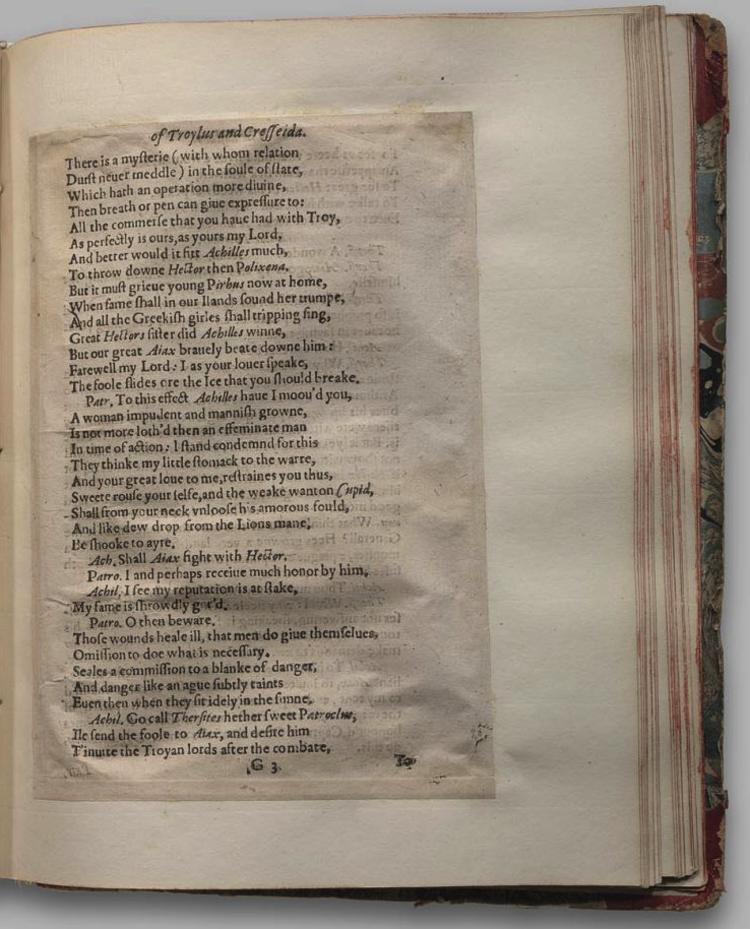 of Troylus and Cresseida.
There is a mysterie (with whom relation
Durst neuer meddle) in the soule of state,
Which hath an operation more diuine,
Then breath or pen can giue expressure to:
All the commerse that you haue had with Troy,
As perfectly is ours, as yours my Lord,
And better would it fitt Achilles much,
To throw downe Hector then Polixena.
But it must grieue young Pirhus now at home,
When fame shall in our Ilands sound her trumpe,
And all the Greekish girles shall tripping sing,
Great Hectors sister did Achilles winne,
But our great Aiax brauely beate downe him:
Farewell my Lord: I as your louer speake,
The foole slides ore the Ice that you should breake.
Patr. To this effect Achilles haue I moou'd you,
A woman impudent and mannish growne,
Is not more loth'd then an effeminate man
In time of action: I stand condemnd for this
They thinke my little stomack to the warre,
And your great loue to me, restraines you thus,
Sweete rouse your selfe, and the weake wanton Cupid,
Shall from your neck vnloose his amorous fould,
And like dew drop from the Lions mane,
Be shooke to ayre.
Ach. Shall Aiax fight with Hector.
Patro. I and perhaps receiue much honor by him,
Achil. I see my reputation is at stake,
My fame is shrowdly gor'd.
Patro. O then beware.
Those wounds heale ill, that men do giue themselues,
Omission to doe what is necessary.
Seales a commission to a blanke of danger,
And danger like an ague subtly taints
Euen then when they sit idely in the sunne.
Achil. Go call Thersites hether sweet Patroclus,
Ile send the foole to Aiax, and desire him
T'inuite the Troyan lords after the combate,
G 3 To